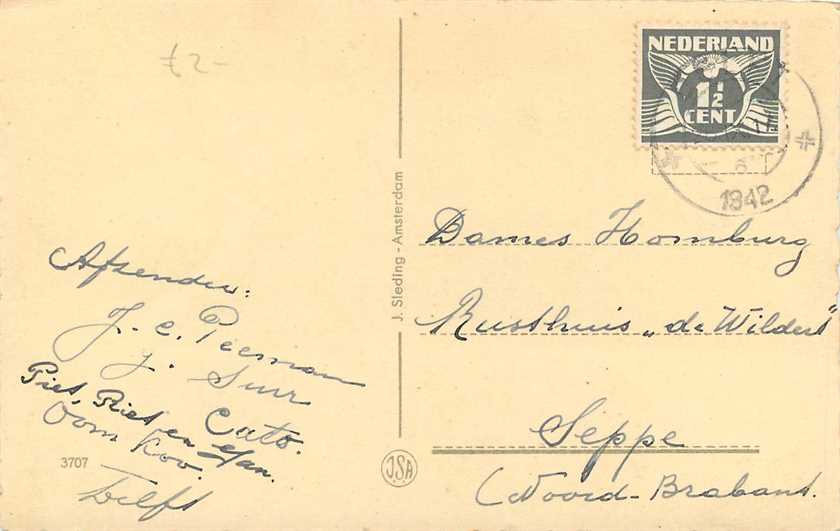 £2-
Afzender:
J. C. Peeman
J. Suur
Piet, Riet en Cato.
Oom Koo. Jan.
Delft
3707
J. Sleding - Amsterdam
JSA
NEDERLAND
1½
CENT
1942
Dames Homburg
Rusthuis „de Wildert"
Seppe
(Noord-Brabant.